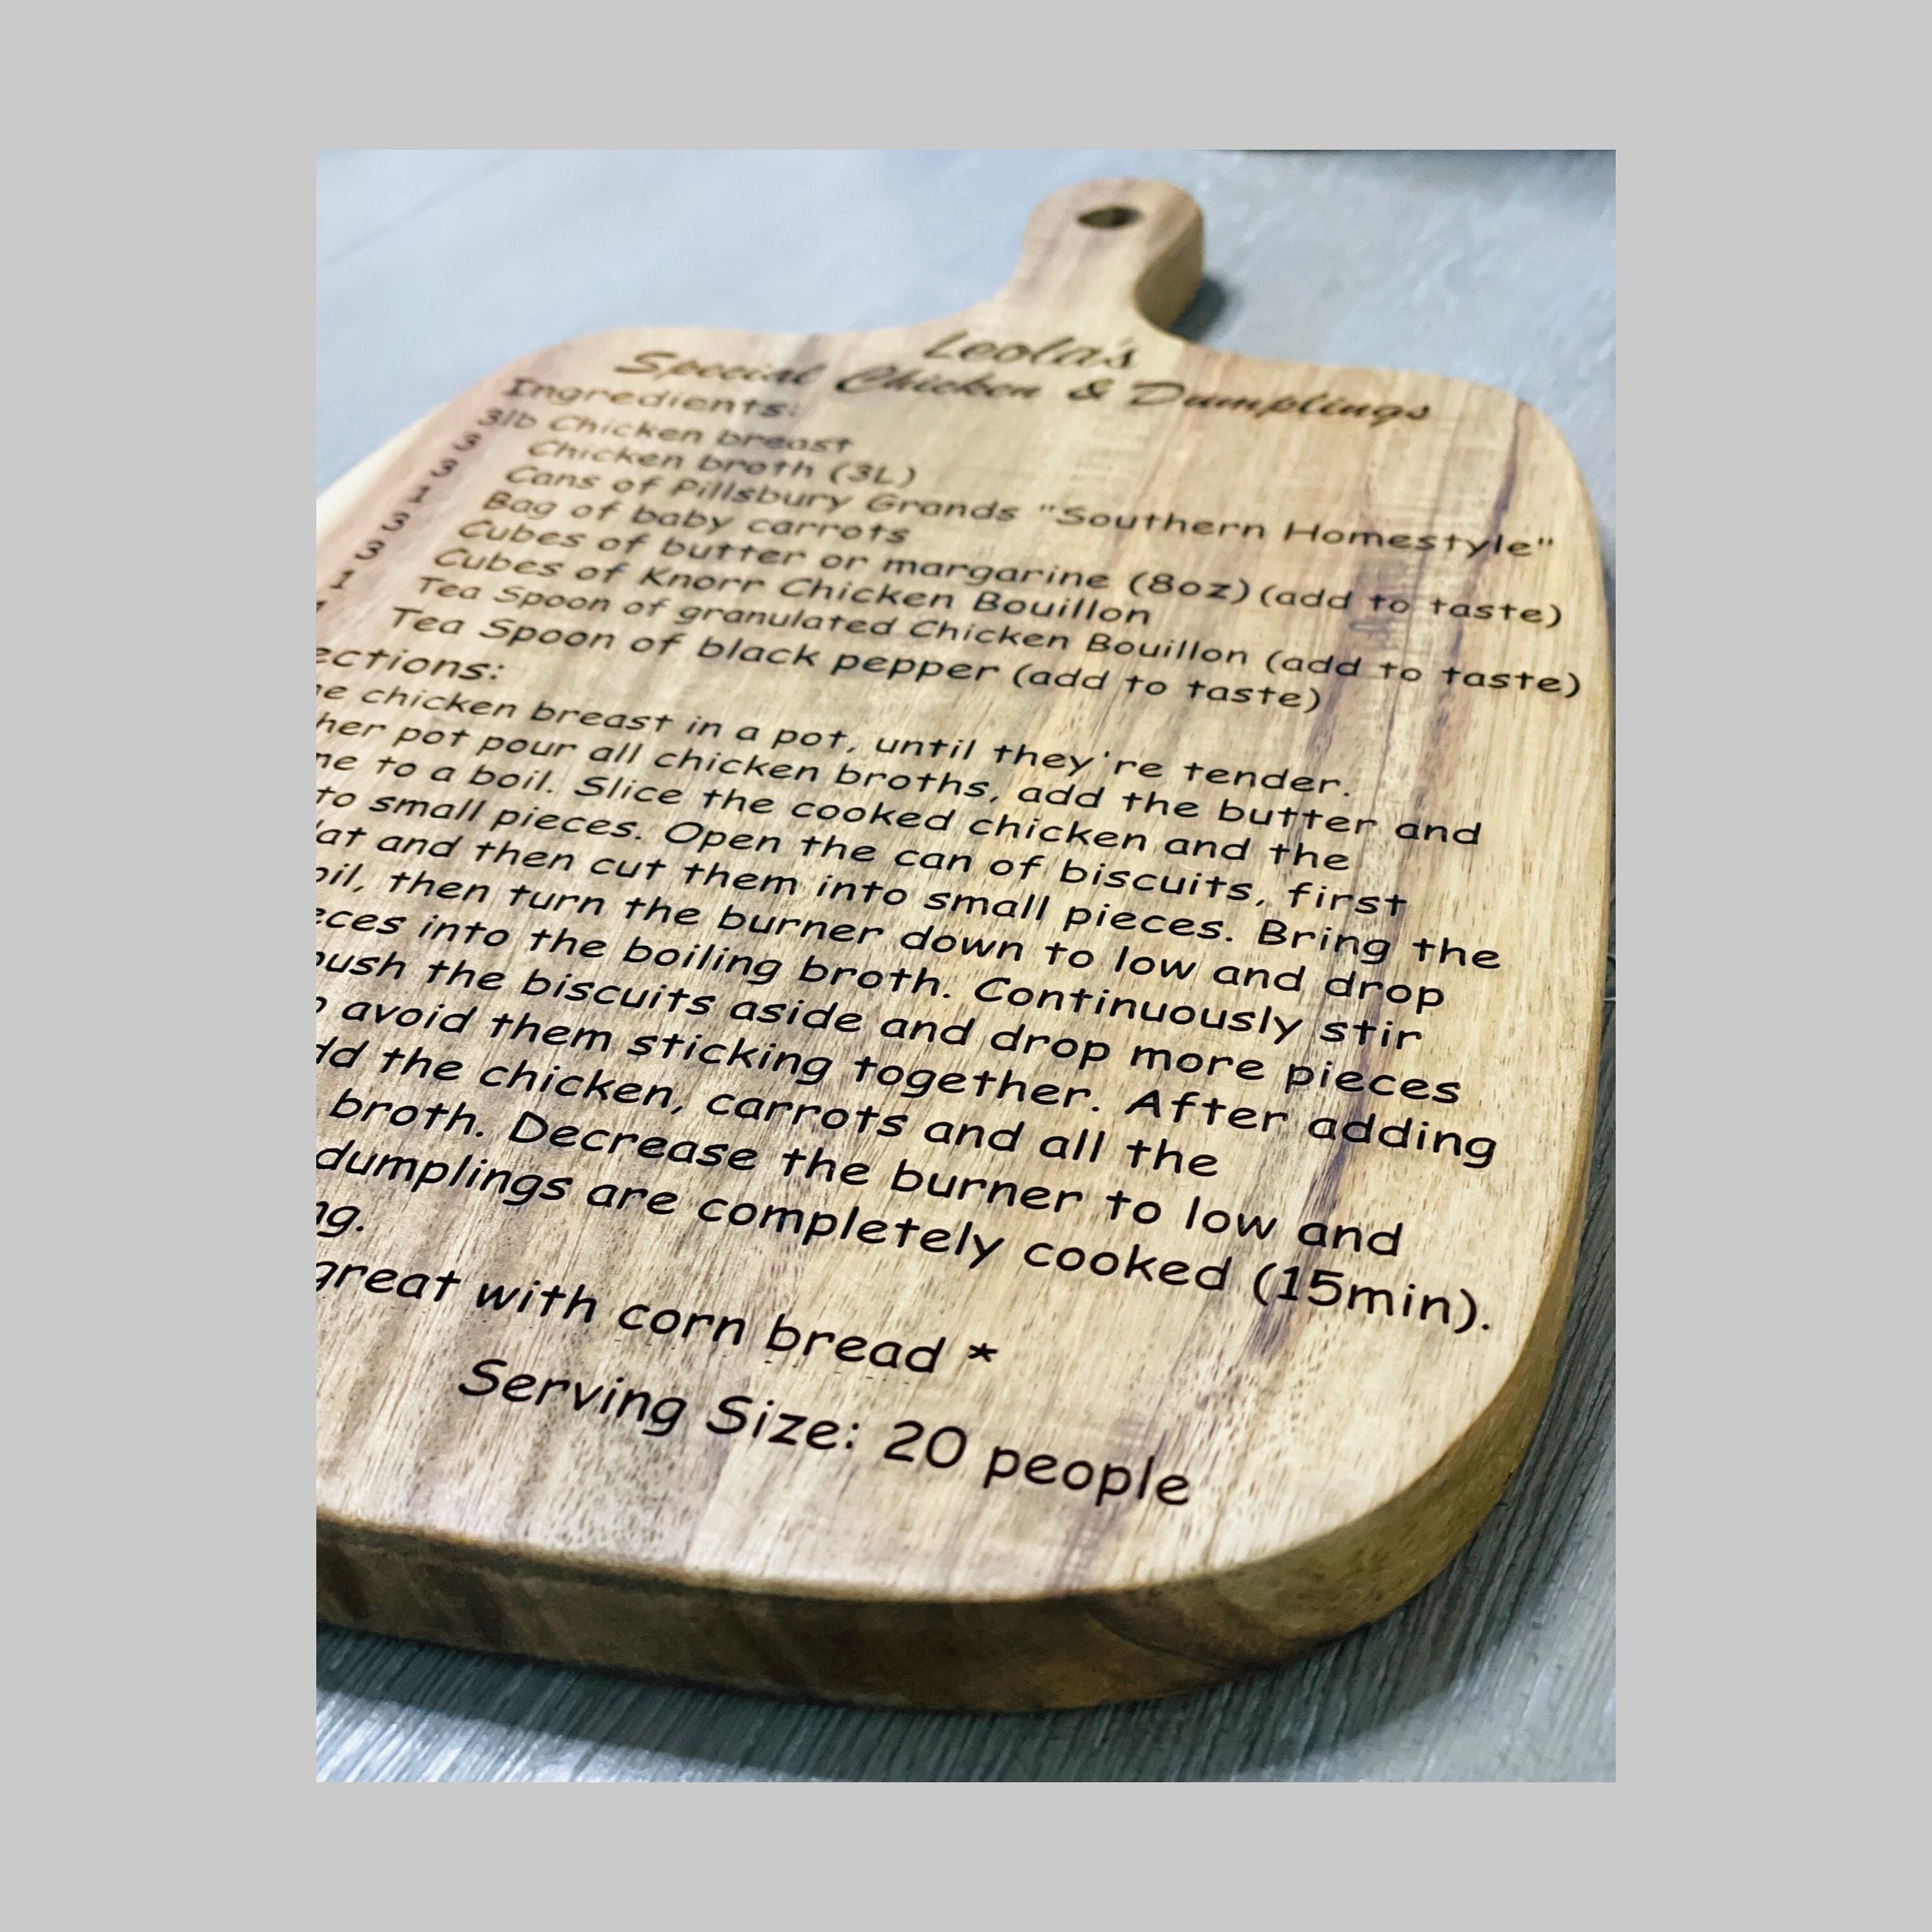 Leola's
Special Chicken & Dumplings
Ingredients:
3lb Chicken breast
3 Chicken broth (3L)
3 Cans of Pillsbury Grands "Southern Homestyle"
1 Bag of baby carrots
3 Cubes of butter or margarine (8oz) (add to taste)
3 Cubes of Knorr Chicken Bouillon
1 Tea Spoon of granulated Chicken Bouillon (add to taste)
Tea Spoon of black pepper (add to taste)
ections:
chicken breast in a pot, until they're tender.
her pot pour all chicken broths, add the butter and
to a boil. Slice the cooked chicken and the
to small pieces. Open the can of biscuits, first
lat and then cut them into small pieces. Bring the
oil, then turn the burner down to low and drop
eces into the boiling broth. Continuously stir
push the biscuits aside and drop more pieces
avoid them sticking together. After adding
dd the chicken, carrots and all the
broth. Decrease the burner to low and
dumplings are completely cooked (15min).
ng.
great with corn bread *
Serving Size: 20 people